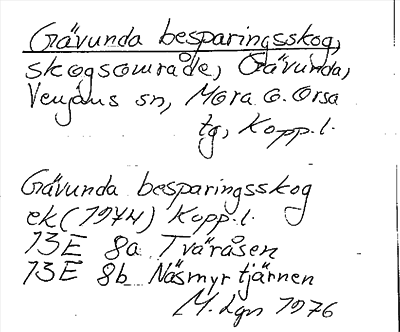 Gävunda besparingsskog,
skogsområde, Gävunda,
Venjans sn, Mora o. Orsa
tg, Kopp.l.
Gävunda besparingsskog
ek (1974) Kopp.l.
13E 8a Tväråsen
13E 8b Näsmyrtjärnen
M.Lgn 1976